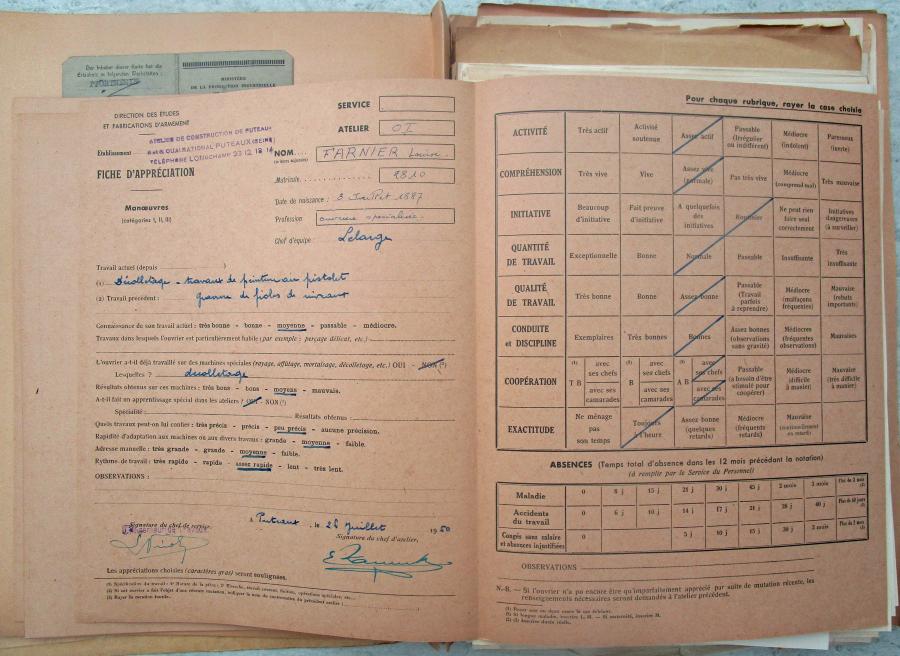 Der Inhaber dieser Karte hat die
Erlaubnis in folgenden Werkstätten :
MINISTÈRE
DE LA PRODUCTION INDUSTRIELLE
DIRECTION DES ÉTUDES
ET FABRICATIONS D'ARMEMENT
SERVICE
ATELIER OI
ATELIER DE CONSTRUCTION DE PUTEAUX
QUAI NATIONAL PUTEAUX (SEINE)
TÉLÉPHONE LONGCHAMP
Établissement
NOM. FARNIER Louise.
FICHE D'APPRÉCIATION
Matricule. 2810
Manœuvres
(catégories I, II, III)
Date de naissance : 3 Juillet 1887
Profession ouvrière spécialisée.
Chef d'équipe : Lelarge
Travail actuel (depuis
(1) Décolletage - travaux de peinture au pistolet
(2) Travail précédent : de
Connaissance de son travail actuel : très bonne - bonne - moyenne - passable - médiocre.
Travaux dans lesquels l'ouvrier est particulièrement habile (par exemple : perçage délicat, etc.)
L'ouvrier a-t-il déjà travaillé sur des machines spéciales (rayage, affûtage, mortaisage, décolletage, etc.) OUI - NON (3)
Lesquelles ? décolletage
Résultats obtenus sur ces machines : très bons - bons - moyens - mauvais.
A-t-il fait un apprentissage spécial dans les ateliers ? OUI - NON (3)
Spécialité : Résultats obtenus :
Quels travaux peut-on lui confier : très précis - précis - peu précis - aucune précision.
Rapidité d'adaptation aux machines ou aux divers travaux : grande - moyenne - faible.
Adresse manuelle : très grande - grande - moyenne - faible.
Rythme de travail : très rapide - rapide - assez rapide - lent - très lent.
OBSERVATIONS :
A Puteaux, le 26 Juillet 1950
Signature du chef de service,
Signature du chef d'atelier,
Les appréciations choisies (caractères gras) seront soulignées.
(3) Rayer la mention inutile.
Pour chaque rubrique, rayer la case choisie
ACTIVITÉ Très actif Activité soutenue Assez actif Passable (Irrégulier ou indifférent) Médiocre (indolent) Paresseux (inerte)
COMPRÉHENSION Très vive Vive Assez vive (normale) Pas très vive Médiocre (comprend mal) Très mauvaise
INITIATIVE Beaucoup d'initiative Fait preuve d'initiative A quelquefois des initiatives Routinier Ne peut rien faire seul correctement Initiatives dangereuses (à surveiller)
QUANTITÉ DE TRAVAIL Exceptionnelle Bonne Normale Passable Insuffisante Très insuffisante
QUALITÉ DE TRAVAIL Très bonne Bonne Assez bonne Passable (Travail parfois à reprendre) Médiocre (malfaçons fréquentes) Mauvaise (rebuts importants)
CONDUITE et DISCIPLINE Exemplaires Très bonnes Bonnes Assez bonnes (observations sans gravité) Médiocres (fréquentes observations) Mauvaises
COOPÉRATION (1) T B avec ses chefs avec ses camarades (1) B avec ses chefs avec ses camarades (1) A B avec ses chefs avec ses camarades Passable (a besoin d'être stimulé pour coopérer) Médiocre (difficile à manier) Mauvaise (très difficile à manier)
EXACTITUDE Ne ménage pas son temps Toujours à l'heure Assez bonne (quelques retards) Médiocre (fréquents retards) Mauvaise (continuellement en retard)
ABSENCES (Temps total d'absence dans les 12 mois précédant la notation)
(à remplir par le Service du Personnel)
Maladie 0 8 j 15 j 21 j 30 j 45 j 2 mois 3 mois Plus de 3 mois (2)
Accidents du travail 0 6 j 10 j 14 j 17 j 21 j 28 j 40 j Plus de 60 jours (3)
Congés sans salaire et absences injustifiées 0 5 j 10 j 15 j 30 j 2 mois Plus de 2 mois (3)
OBSERVATIONS
N.-B. — Si l'ouvrier n'a pu encore être qu'imparfaitement apprécié par suite de mutation récente, les
renseignements nécessaires seront demandés à l'atelier précédent.
(2) Si longue maladie, inscrire L. M. — Si maternité, inscrire M.
(3) Inscrire durée réelle.